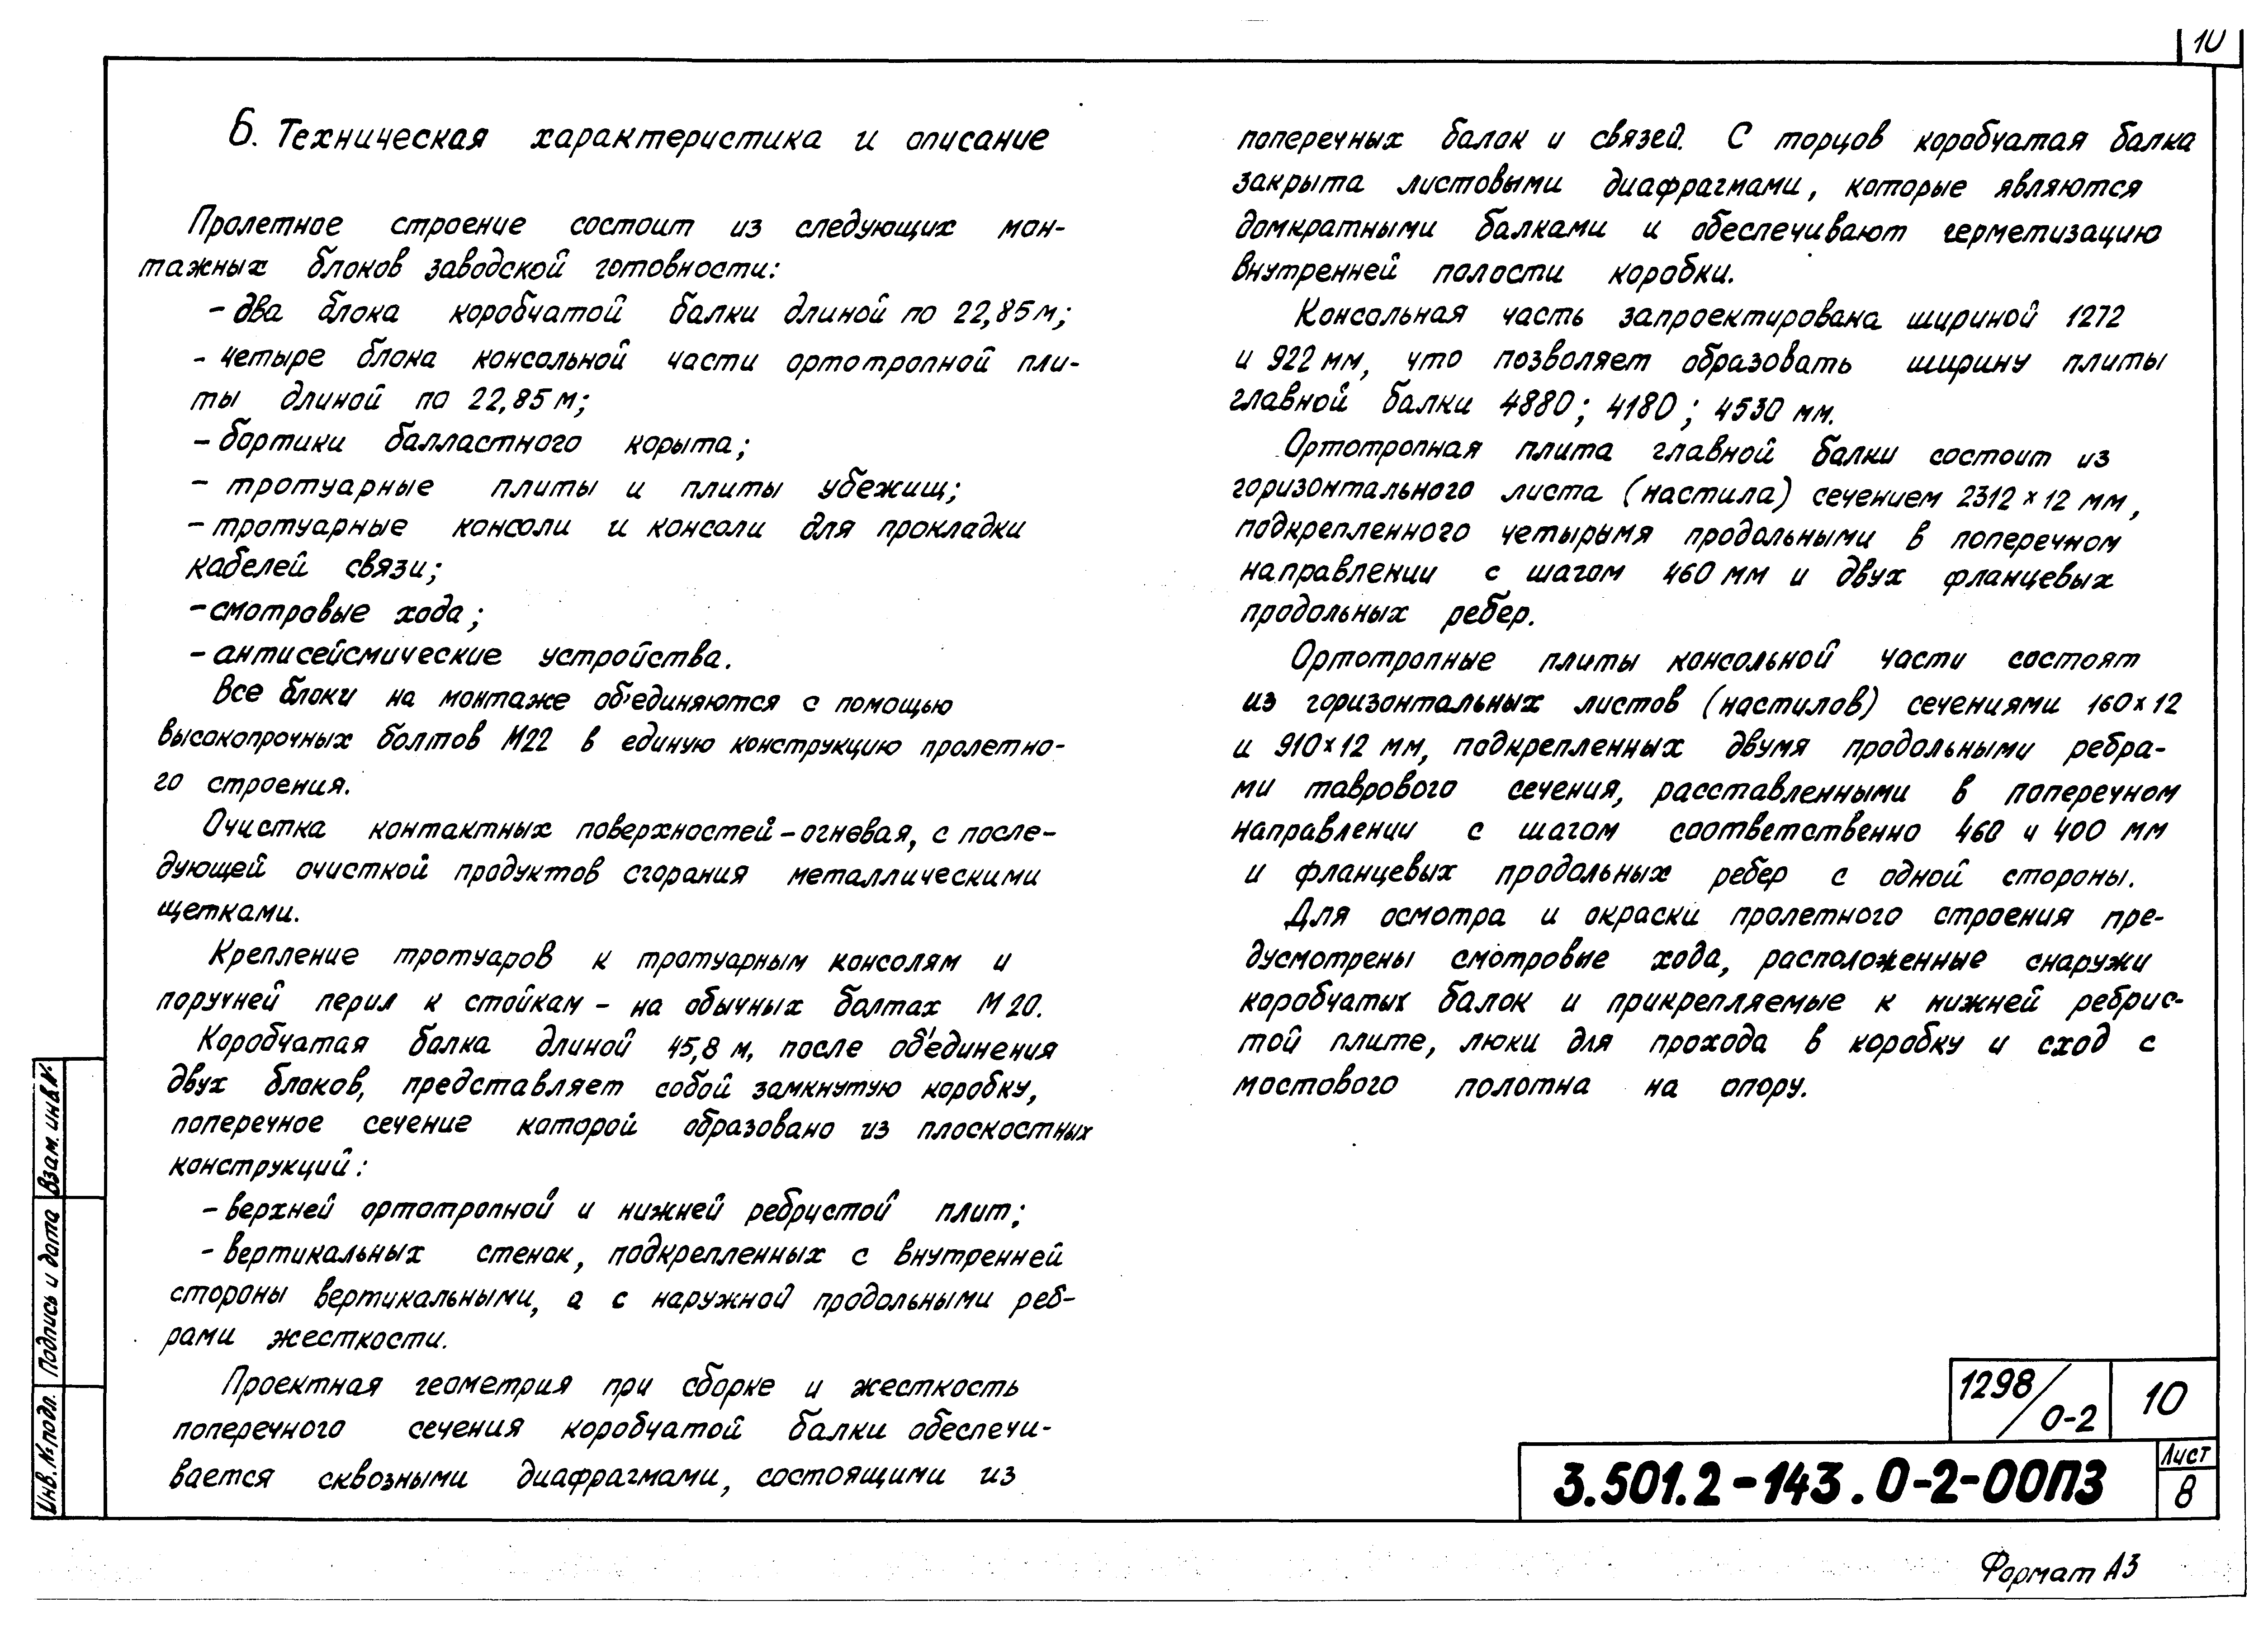 10
6. Техническая характеристика и описание
Пролетное строение состоит из следующих мон-
тажных блоков заводской готовности:
- два блока коробчатой балки длиной по 22,85 м;
- четыре блока консольной части ортотропной пли-
ты длиной по 22,85 м;
- бортики балластного корыта;
- тротуарные плиты и плиты убежищ;
- тротуарные консоли и консоли для прокладки
кабелей связи;
- смотровые хода;
- антисейсмические устройства.
Все блоки на монтаже объединяются с помощью
высокопрочных болтов М22 в единую конструкцию пролетно-
го строения.
Очистка контактных поверхностей - огневая, с после-
дующей очисткой продуктов сгорания металлическими
щетками.
Крепление тротуаров к тротуарным консолям и
поручней перил к стойкам - на обычных болтах М 20.
Коробчатая балка длиной 45,8 м, после об'единения
двух блоков, представляет собой замкнутую коробку,
поперечное сечение которой образовано из плоскостных
конструкций:
- верхней ортотропной и нижней ребристой плит;
- вертикальных стенок, подкрепленных с внутренней
стороны вертикальными, а с наружной продольными реб-
рами жесткости.
Проектная геометрия при сборке и жесткость
поперечного сечения коробчатой балки обеспечи-
вается сквозными диафрагмами, состоящими из
поперечных балок и связей. С торцов коробчатая балка
закрыта листовыми диафрагмами, которые являются
домкратными балками и обеспечивают герметизацию
внутренней полости коробки.
Консольная часть запроектирована шириной 1272
и 922 мм, что позволяет образовать ширину плиты
главной балки 4880; 4180; 4530 мм.
Ортотропная плита главной балки состоит из
горизонтального листа (настила) сечением 2312 × 12 мм,
подкрепленного четырьмя продольными в поперечном
направлении с шагом 460 мм и двух фланцевых
продольных ребер.
Ортотропные плиты консольной части состоят
из горизонтальных листов (настилов) сечениями 160 × 12
и 910 × 12 мм, подкрепленных двумя продольными ребра-
ми таврового сечения, расставленными в поперечном
направлении с шагом соответственно 460 и 400 мм
и фланцевых продольных ребер с одной стороны.
Для осмотра и окраски пролетного строения пре-
дусмотрены смотровые хода, расположенные снаружи
коробчатых балок и прикрепляемые к нижней ребрис-
той плите, люки для прохода в коробку и сход с
мостового полотна на опору.
Взам. инв.№
Подпись и дата
Инв. № подл.
1298/0-2
10
3.501.2-143.0-2-00ПЗ
Лист
8
Формат А3